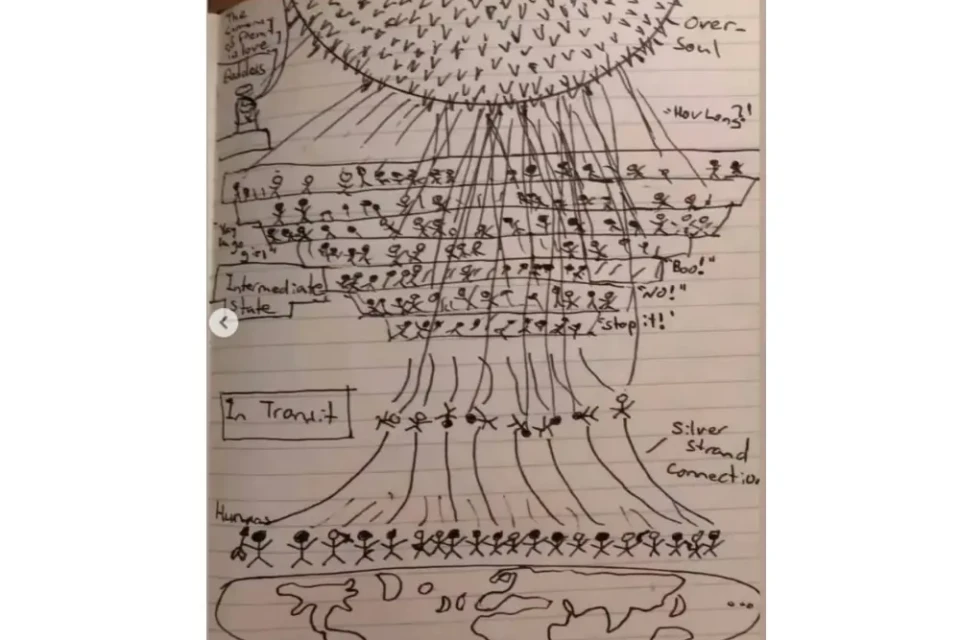 The
is love
Goddess
Over-
Soul
"How Long?!"
"You
go
girl"
"Boo!"
Intermediate
State
"NO!"
"Stop it!"
In Transit
Silver
Strand
Connection
Humans